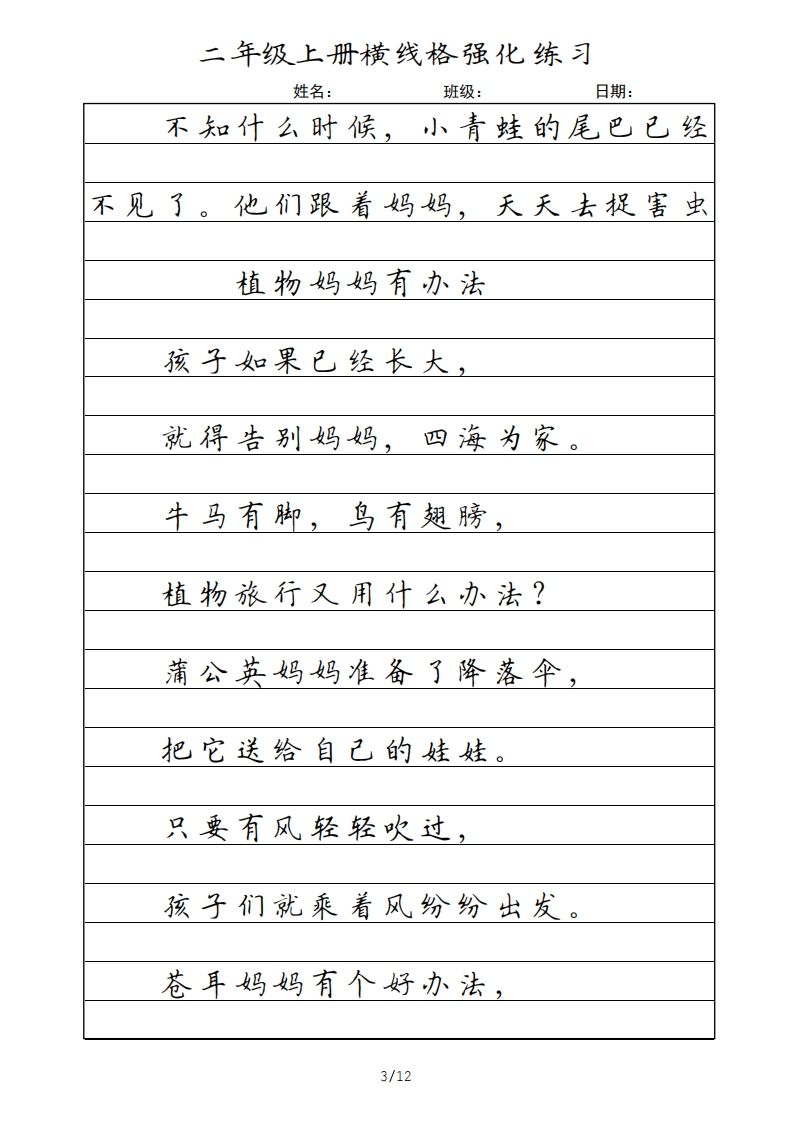 二年级上册横线格强化练习
姓名： 班级： 日期：
不知什么时候，小青蛙的尾巴已经
不见了。他们跟着妈妈，天天去捉害虫
植物妈妈有办法
孩子如果已经长大，
就得告别妈妈，四海为家。
牛马有脚，鸟有翅膀，
植物旅行又用什么办法？
蒲公英妈妈准备了降落伞，
把它送给自己的娃娃。
只要有风轻轻吹过，
孩子们就乘着风纷纷出发。
苍耳妈妈有个好办法，
3/12